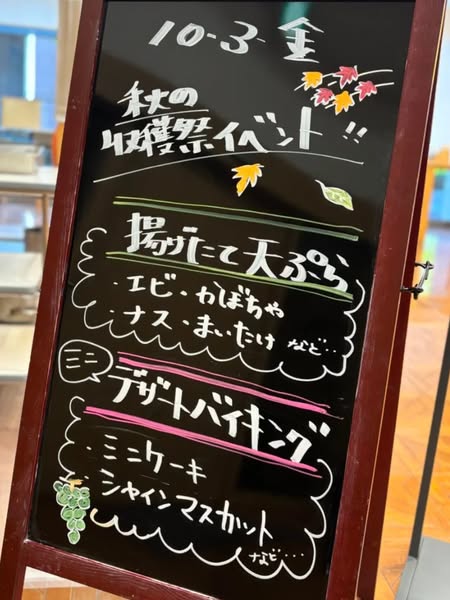 10-3-金
秋の
収穫祭イベント!!
揚げたて天ぷら
・エビ・かぼちゃ
・ナス・まいたけ など…
ミニ
デザートバイキング
・ミニケーキ
・シャインマスカット
など…